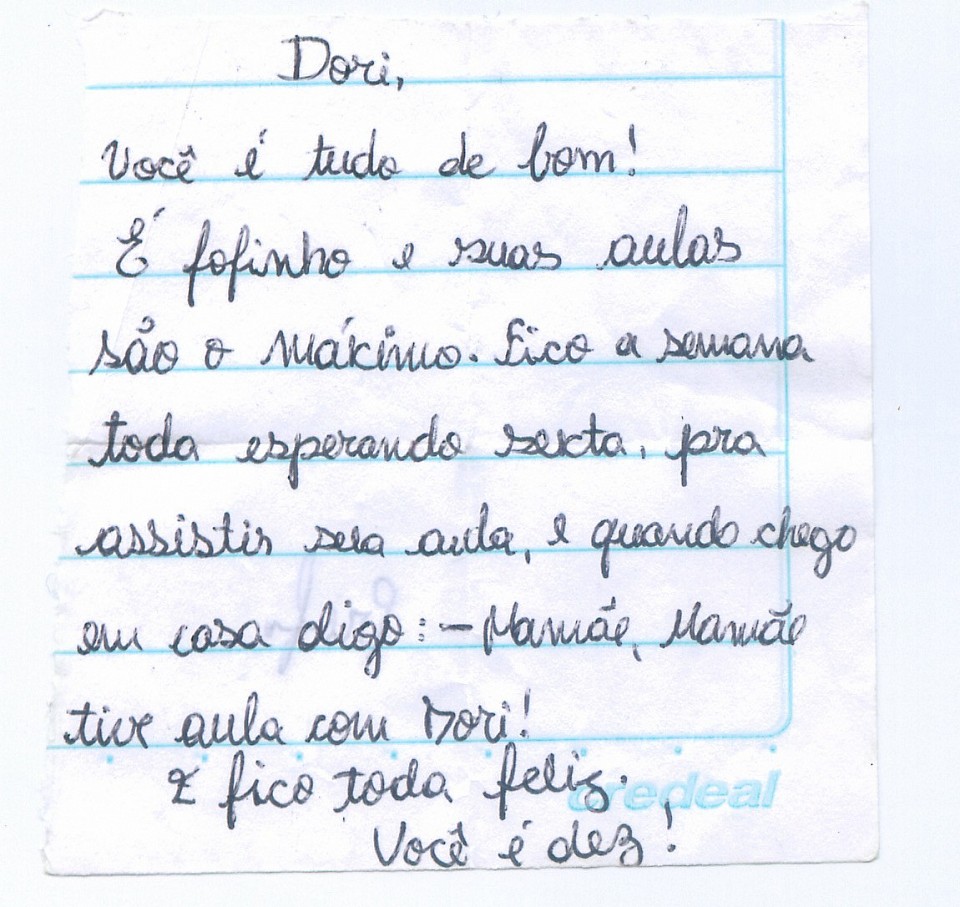 Dori,
Você é tudo de bom!
É fofinho e suas aulas
são o máximo. Fico a semana
toda esperando sexta, pra
assistir sua aula, e quando chego
em casa digo: - Mamãe, Mamãe
tive aula com Dori!
E fico toda feliz.
credeal
Você é dez!